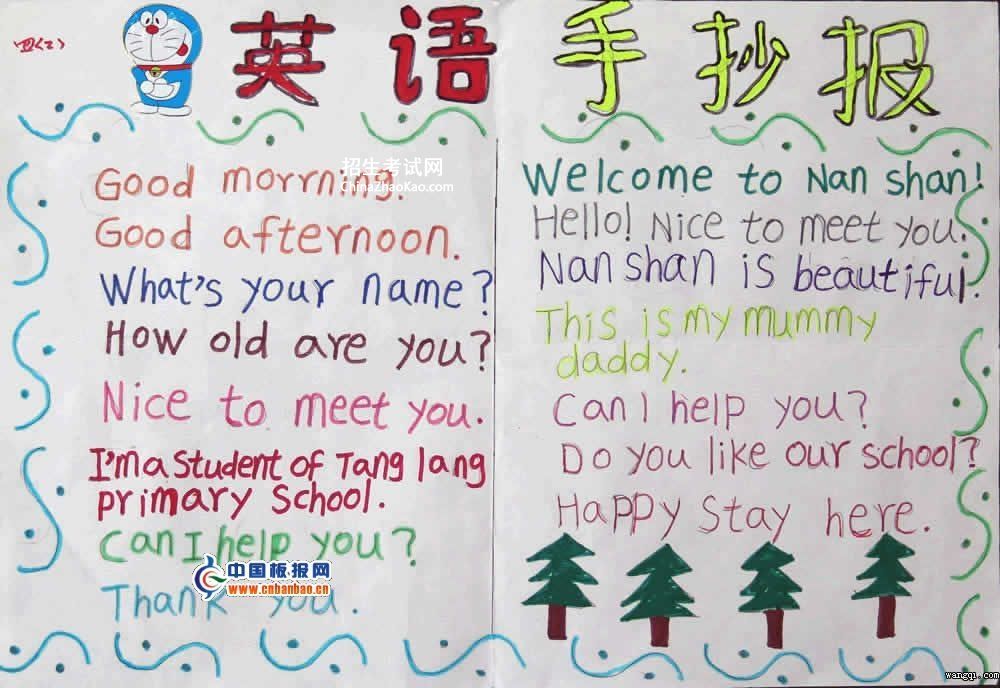 四(2)
英语手抄报
Good morrning.
Good afternoon.
What's your name?
How old are you?
Nice to meet you.
I'm a student of Tang lang
primary School.
Can I help you?
Thank you.
Welcome to Nan shan!
Hello! Nice to meet you.
Nan shan is beautiful.
This is my mummy
daddy.
Can I help you?
Do you like our school?
Happy Stay here.
招生考试网
ChinaZhaoKao.com
中国板报网
www.cnbanbao.cn
wangqi.com